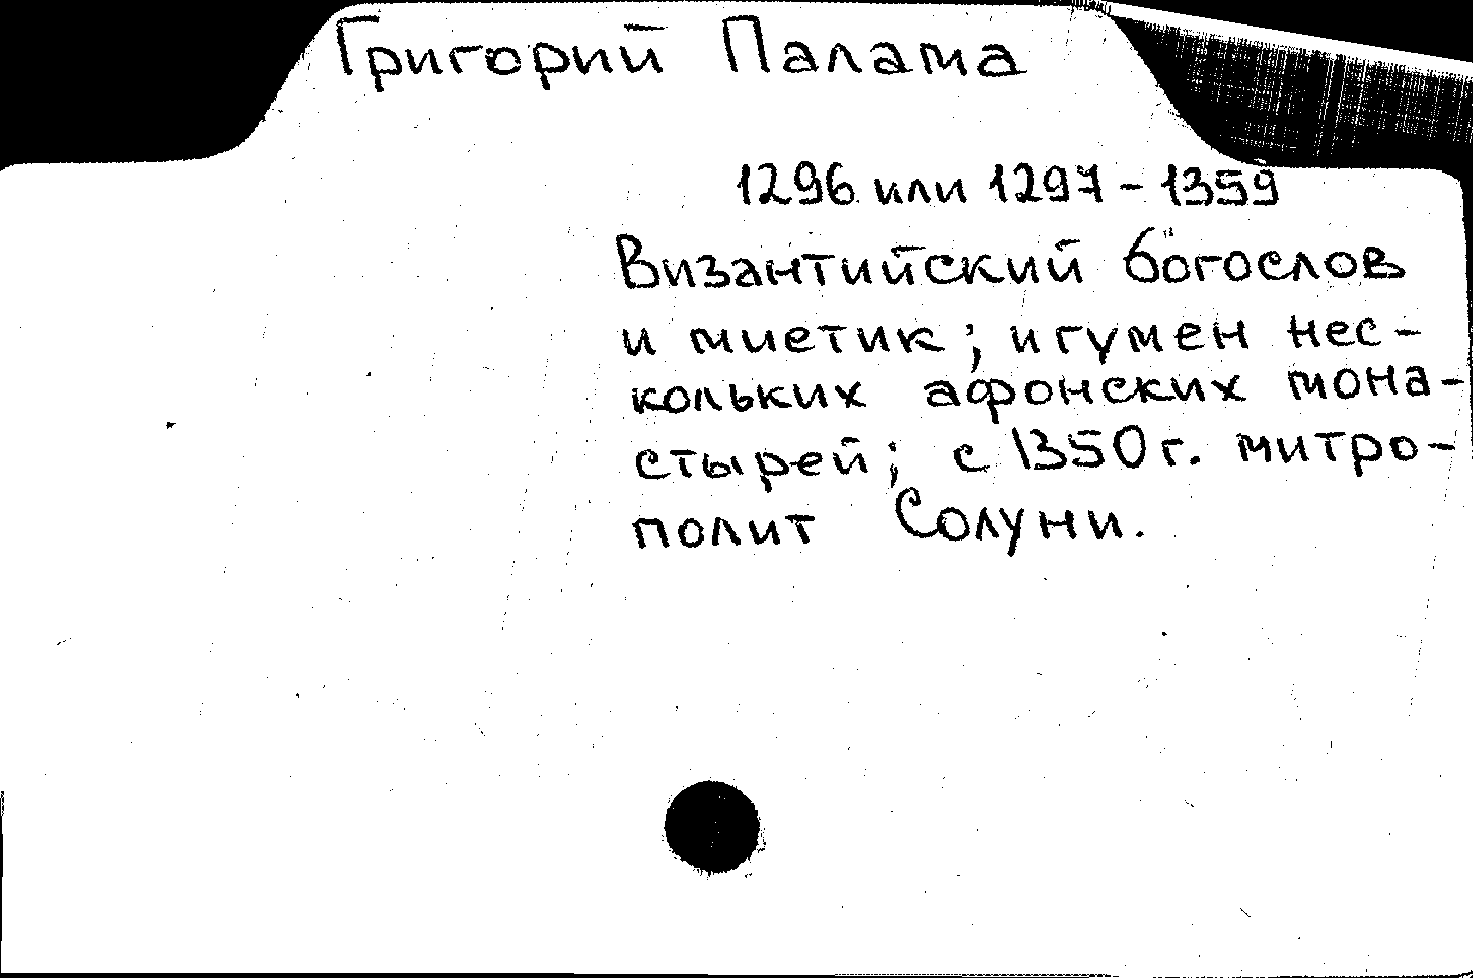 Григорий Палама
1296 или 1297 - 1359
Византийский богослов
и мистик; игумен нес-
кольких афонских мона-
стырей; с 1350 г. митро-
полит Солуни.